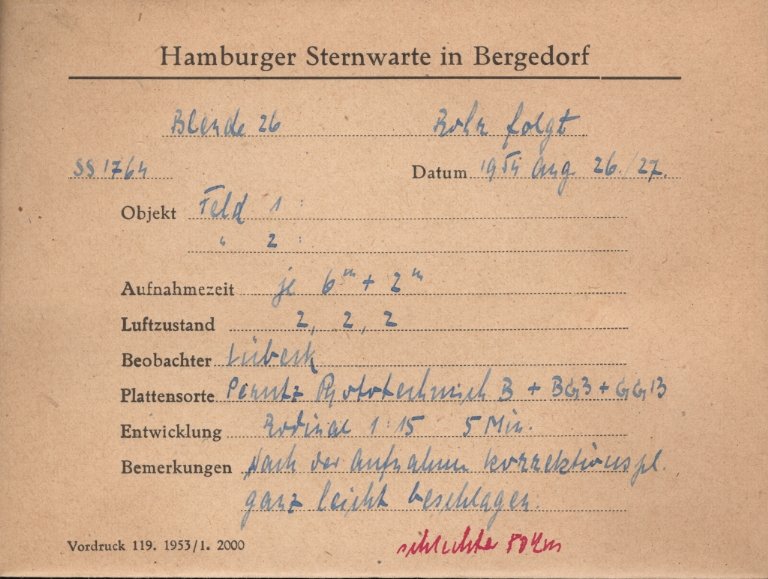 Hamburger Sternwarte in Bergedorf
Blende 26 Rohr folgt
SS 1764 Datum 1954 Aug 26./27.
Objekt Feld 1 :
" 2 :
Aufnahmezeit je 6ᵐ + 2ᵐ
Luftzustand 2, 2, 2
Beobachter Lübeck
Plattensorte Perutz Phototechnisch B + BG3 + GG13
Entwicklung Rodinal 1:15 5 Min.
Bemerkungen Nach der Aufnahme Korrektionspl.
ganz leicht beschlagen.
Vordruck 119. 1953/1. 2000 schlechte